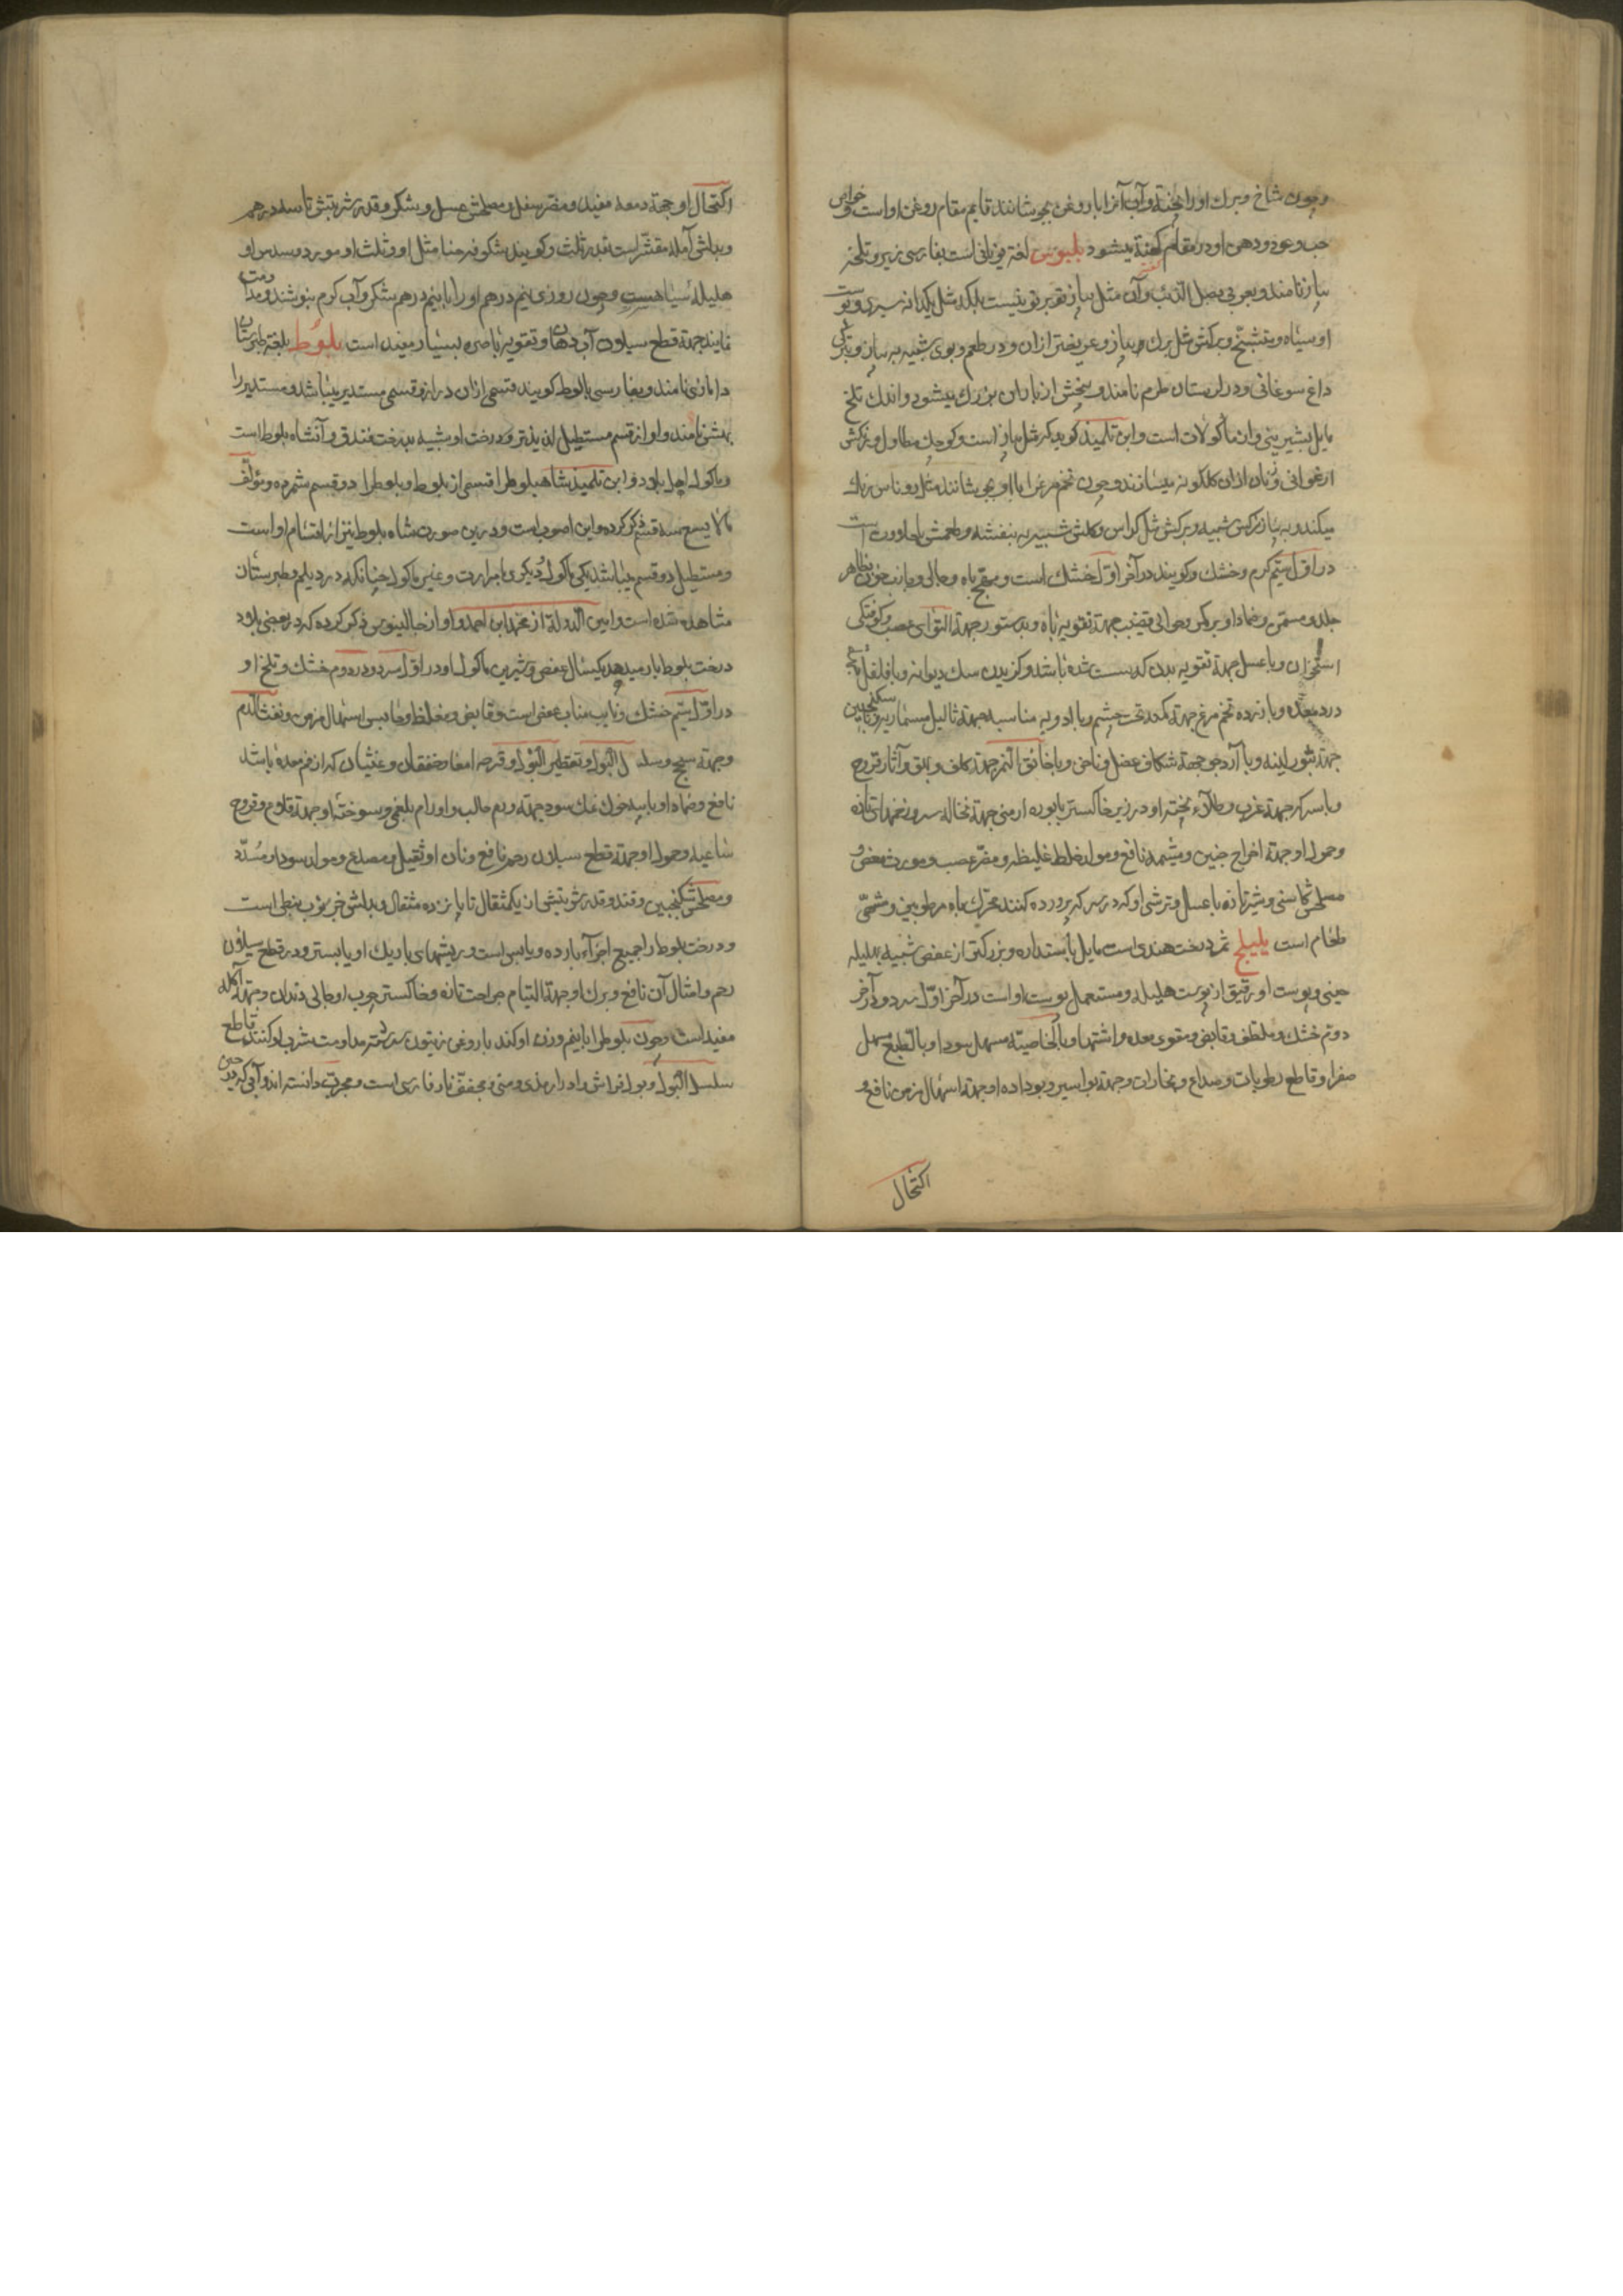 وچون شاخ وبرك اورا پخته وآب آنرا با روغن بجوشانند قايم مقام روغن اوست وخواص
حب وعود ودهن او در مقام كفته ميشود بلبوس لغة يونانى است بفارسى زيز وتلخه
پياز نامند وبعربى بصل الذئب وآن مثل پياز توبرتو نيست بلكه مثل يكدانه سير وپوست
او سياه ومتشنج وبركش مثل برك پياز وعريضتر ازان ودر طعم وبوى شبيه به پياز وبتركى
داغ سوغانى ودر لرستان طرم نامند وبيخش از باران بزرك ميشود واندك تلخ
مايل بشيرينى وان مأكولات است وابن تلميذ كويد كه مثل پياز است وكوچك مطاول وبركش
ارغوانى وزنان ازان كلكونه ميسازند وچون تخم مرغ را با او بجوشانند مثل روناس رنك
ميكند وبه پياز نركس شبيه وبركش مثل كراس وكلش شبيه به بنفشه وطعمش با حلاوت است
در اول سيم كرم وخشك وكويند در آخر اول خشك است ومهيج باه وجالى وجاذب خون بظاهر
جلد ومسمن وضماد او بر كمر وحوالى قضيب جهة تقويه باه وبدستور جهة التواى عصب وكوفتكى
استخوان وبا عسل جهة تقويه بدن كه سست شده باشد وكزيدن سك ديوانه وبا فلفل جهة
درد معده وبا زرده تخم مرغ جهة كمد تحت چشم وبا ادويه مناسبه جهة ثاليل مسماريه وبا سكنجبين
جهة بثور لبنيه وبا آرد جو جهة شكاف عضل وناخن وبا خانق النمر جهة كلف وبهق وآثار قروح
وبا سركه جهة غرب وطلاء پخته او در زير خاكستر با بوره ارمنى جهة نخاله سر وزخمهاى تازه
وحمول او جهة اخراج جنين ومشيمه نافع ومولد خلط غليظ ومضر عصب ومورث مغص و
مصلحش كاسنى وشير تازه با عسل وترشى او كه در سركه پرورده كنند محرك باه مرطوبين ومشهى
طعام است بليلج ثمر درخت هندى است مايل باستداره وبزركتر از عفص شبيه بهليله
چينى وپوست او رقيق از پوست هليله ومستعمل پوست اوست در آخر اول سرد ودر آخر
دوم خشك وملطف وقابض ومقوى معده واشتها وبالخاصيه مسهل سودا وبالطبع مسهل
صفرا وقاطع رطوبات وصداع وبخارات وجهة بواسير وبو داده او جهة اسهال مزمن نافع و
اكتحال
اكتحال او جهة دمعه مفيد ومضر سفل ومصلحش عسل وشكر وقدر شربتش تا سه درهم
وبدلش آمله مقشر است بقدر ثلث وكويند شكوفه حنا مثل او وثلث او مورد وسدس او
هليله سياهست وچون روزى نيم درهم او را با نيم درهم شكر وآب كرم بنوشند ومداومت
نمايند جهة قطع سيلان آب دهان وتقويه باصره بسيار مفيد است بلوط بلغة طبرستان
دارمازى نامند وبفارسى بالوط كويند قسمى ازان دراز وقسمى مستدير ميباشد ومستدير را
بهش نامند واو از قسم مستطيل لذيذتر ودرخت او شبيه بدرخت فندق وآن شاه بلوط است
وماكول اهل بلاد وابن تلميذ شاهبلوط را قسمى از بلوط وبلوط را دو قسم شمرده ومؤلف
مالا يسع سه قسم ذكر كرده واين اصوب است ودرين صورت شاه بلوط نيز از اقسام اوست
ومستطيل دو قسم ميباشد يكى ماكول وديكرى با مرارت وغير ماكول چنانكه در ديلم وطبرستان
مشاهده شده است وامين الدوله از محمد ابن احمد واو از جالينوس ذكر كرده كه در بعضى بلاد
درخت بلوط بار ميدهد يكسال عفص وشيرين ماكول او در اول سرد ودر دوم خشك وتلخ او
در اول سيم خشك ونايب مناب عفص است وقابض ومغلظ وحابس اسهال مزمن ونفث الدم
وجهة سحج وسلسل البول وتقطير البول وقرحه امعا وخفقان وغثيان كه از فم معده باشد
نافع وضماد او با پيه خوك نمك سود جهة ورم حالب واورام بلغمى وسوخته او جهة قلاع وقروح
ساعيه وحمول او جهة قطع سيلان رحم نافع ونان او ثقيل ومصدع ومولد سودا ومسدد
ومصلحش سكنجبين وقند وقدر شربتش از يكمثقال تا پانزده مثقال وبدلش خرنوب نبطى است
ودرخت بلوط را جميع اجزاء بارده ويابس است وريشهاى باريك او يابس‌تر ودر قطع سيلان
رحم وامثال آن نافع وبرك او جهة التيام جراحت تازه وخاكستر چوب او جالى دندان وجهة آكله
مفيد است وچون بلوط را با نيم وزن او كندر با روغن زيتون سرشته مداومت شرب او كنند قاطع
سلسل البول وبول فراش وادرار مذى ومنى ومجفف نار فارسى است ومجرب دانسته اند وآبى كه در حين